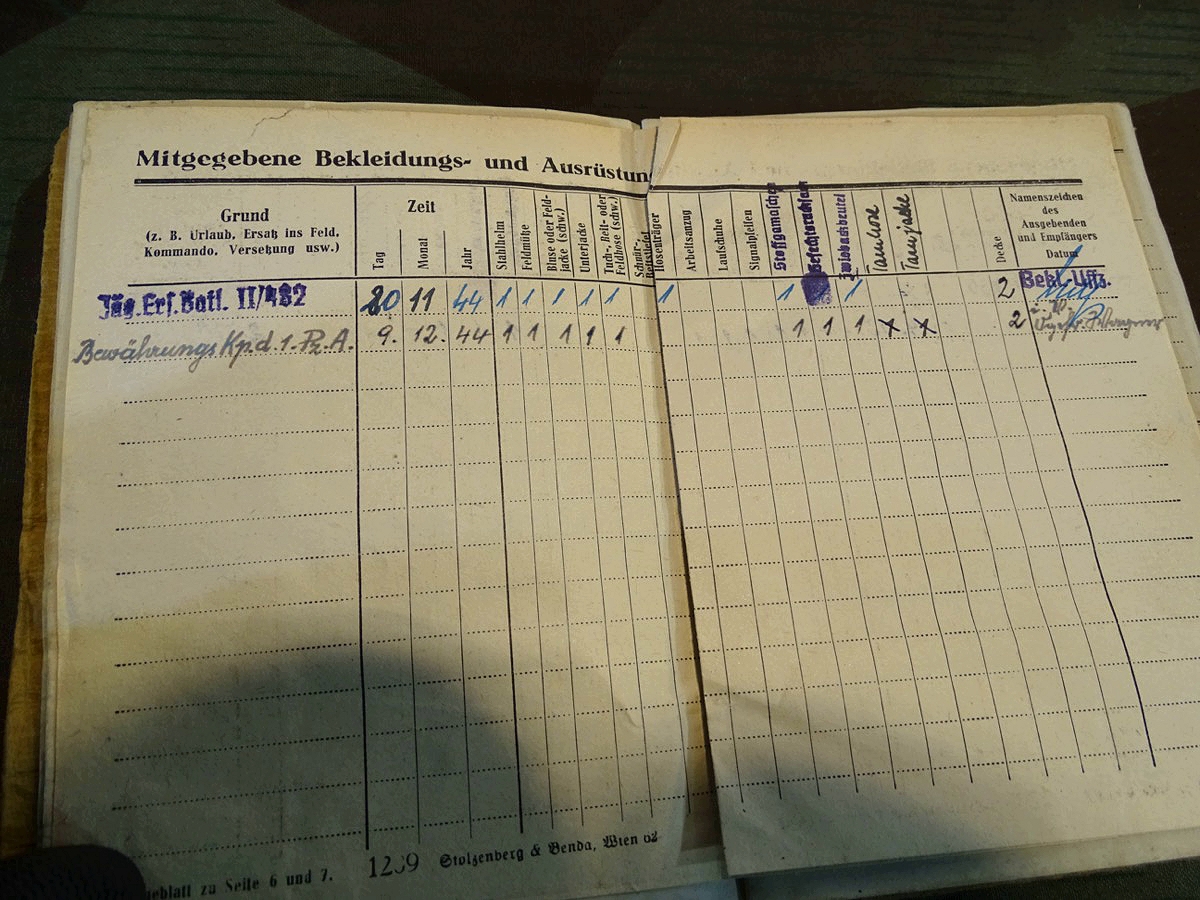 Mitgegebene Bekleidungs- und Ausrüstun
Grund
(z. B. Urlaub, Ersatz ins Feld,
Kommando, Versetzung usw.)
Zeit
Tag
Monat
Jahr
Stahlhelm
Feldmütze
Bluse oder Feld-
jacke (schw.)
Unterjacke
Tuch-, Reit- oder
Feldhose (schw.)
Schnür-
Reitstiefel
Hosenträger
Arbeitsanzug
Laufschuhe
Signalpfeifen
Stoffgamaschen
Zwiebackbeutel
Tarnhose
Tarnjacke
Decke
Namenszeichen
des
Ausgebenden
und Empfängers
Datum
Jäg. Ers. Batl. II/482 20 11 44 1 1 1 1 1 1 1 1 2 Bekl.-Uffz.
Bewährungs Kp. d. 1. Pz. A. 9. 12. 44 1 1 1 1 1 1 1 1 x x 2
1239 Stolzenberg & Benda, Wien 62
geblatt zu Seite 6 und 7.